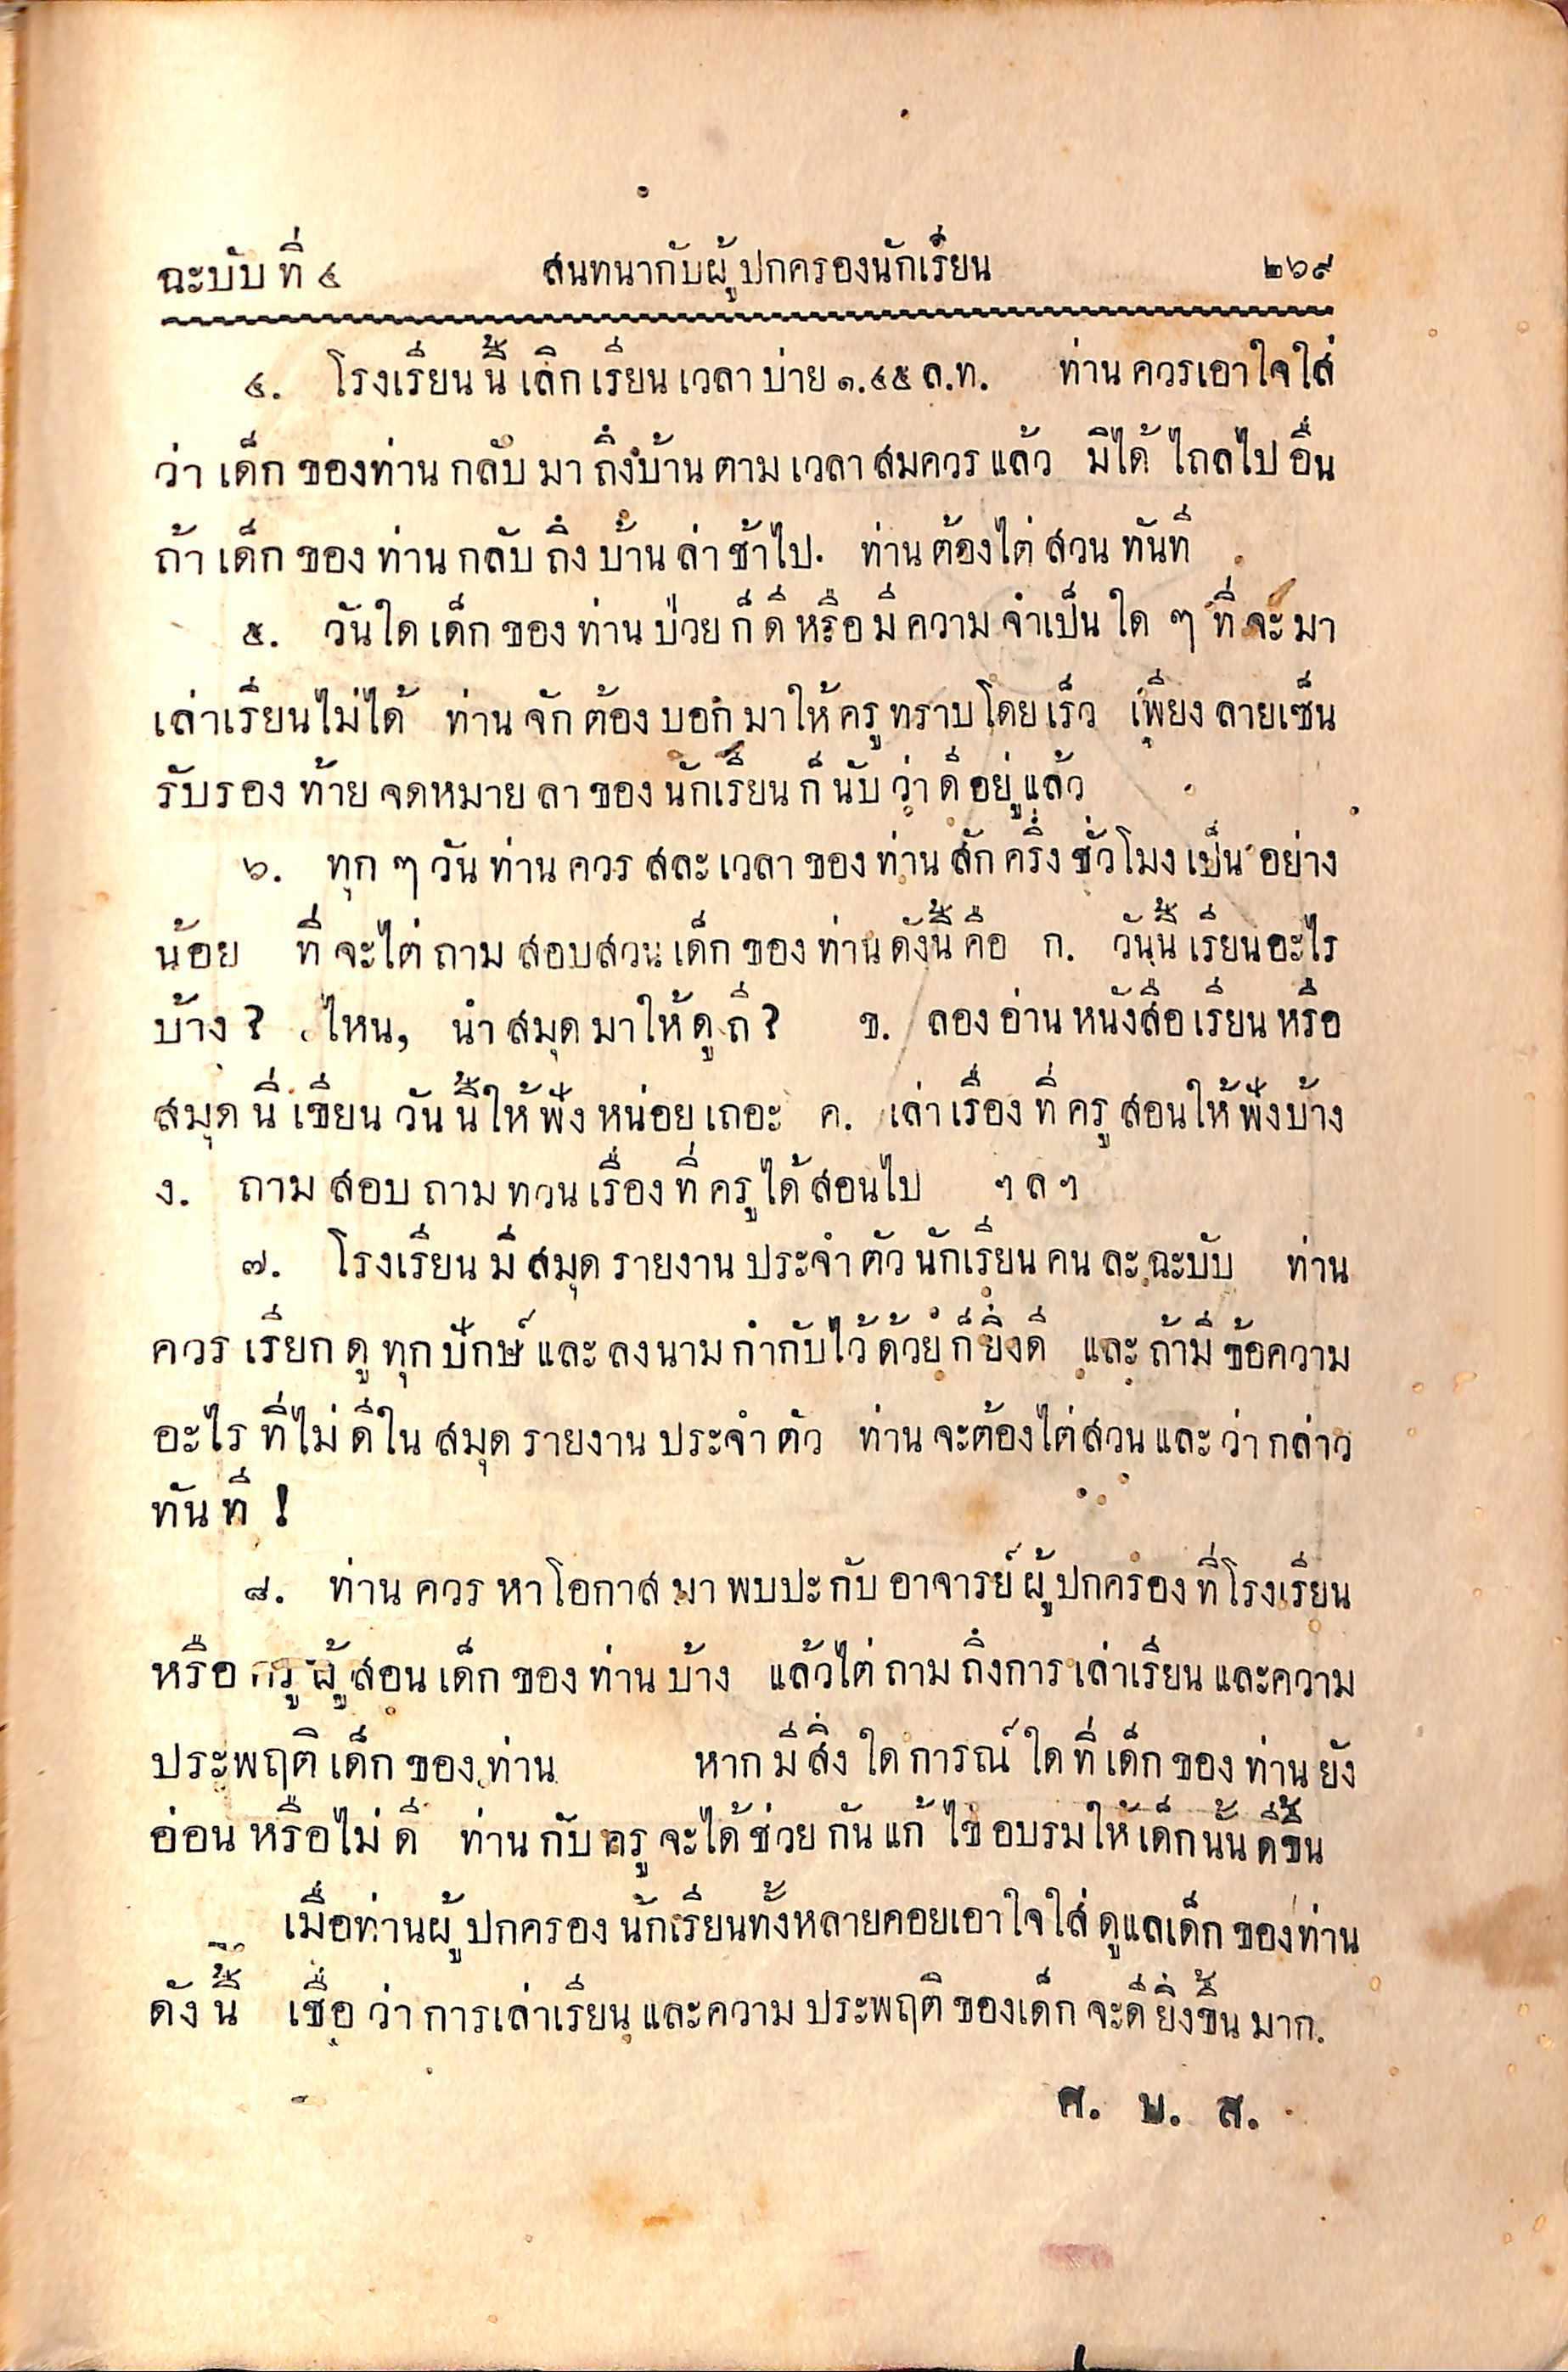 ฉะบับที่ ๔ สนทนากับผู้ปกครองนักเรียน ๒๖๙
๔. โรงเรียนนี้เลิกเรียนเวลาบ่าย ๑.๔๕ ล.ท. ท่านควรเอาใจใส่
ว่าเด็กของท่านกลับมาถึงบ้านตามเวลาสมควรแล้ว มิได้ไถลไปอื่น
ถ้าเด็กของท่านกลับถึงบ้านล่าช้าไป. ท่านต้องไต่สวนทันที
๕. วันใดเด็กของท่านป่วยก็ดีหรือมีความจำเป็นใด ๆ ที่จะมา
เล่าเรียนไม่ได้ ท่านจักต้องบอกมาให้ครูทราบโดยเร็ว เพียงลายเซ็น
รับรองท้ายจดหมายลาของนักเรียนก็นับว่าดีอยู่แล้ว
๖. ทุก ๆ วันท่านควรสละเวลาของท่านสักครึ่งชั่วโมงเป็นอย่าง
น้อย ที่จะไต่ถามสอบสวนเด็กของท่านดังนี้คือ ก. วันนี้เรียนอะไร
บ้าง? ไหน, นำสมุดมาให้ดูถี? ข. ลองอ่านหนังสือเรียนหรือ
สมุดนี่เขียนวันนี้ให้ฟังหน่อยเถอะ ค. เล่าเรื่องที่ครูสอนให้ฟังบ้าง
ง. ถามสอบถามทวนเรื่องที่ครูได้สอนไป ฯลฯ
๗. โรงเรียนมีสมุดรายงานประจำตัวนักเรียนคนละฉะบับ ท่าน
ควรเรียกดูทุกปักษ์และลงนามกำกับไว้ด้วยก็ยิ่งดี และถ้ามีข้อความ
อะไรที่ไม่ดีในสมุดรายงานประจำตัว ท่านจะต้องไต่สวนและว่ากล่าว
ทันที!
๘. ท่านควรหาโอกาสมาพบปะกับอาจารย์ผู้ปกครองที่โรงเรียน
หรือครูผู้สอนเด็กของท่านบ้าง แล้วไต่ถามถึงการเล่าเรียนและความ
ประพฤติเด็กของท่าน หากมีสิ่งใดการณ์ใดที่เด็กของท่านยัง
อ่อนหรือไม่ดี ท่านกับครูจะได้ช่วยกันแก้ไขอบรมให้เด็กนั้นดีขึ้น
เมื่อท่านผู้ปกครองนักเรียนทั้งหลายคอยเอาใจใส่ดูแลเด็กของท่าน
ดังนี้ เชื่อว่าการเล่าเรียนและความประพฤติของเด็กจะดียิ่งขึ้นมาก.
ศ. พ. ส.